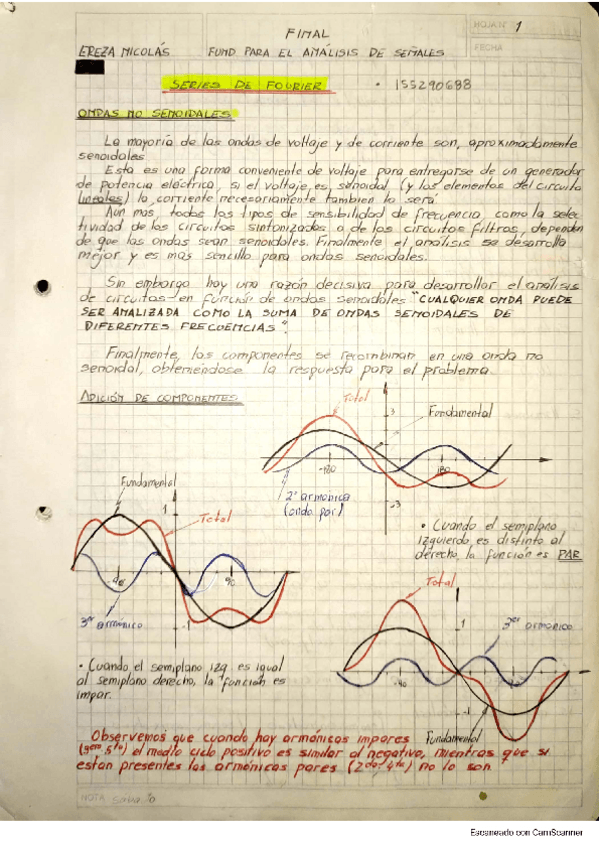 HOJA N° 1
FINAL
FECHA
EREZA NICOLÁS FUND. PARA EL ANÁLISIS DE SEÑALES
SERIES DE FOURIER • 155290688
ONDAS NO SENOIDALES
La mayoría de las ondas de voltaje y de corriente son, aproximadamente
senoidales
Esta es una forma conveniente de voltaje para entregarse de un generador
de potencia eléctrica, si el voltaje es senoidal (y los elementos del circuito
lineales) la corriente necesariamente tambien lo será.
Aún mas, todos los tipos de sensibilidad de frecuencia, como la selec-
tividad de los circuitos sintonizados o de los circuitos filtros, dependen
de que las ondas sean senoidales. Finalmente el analisis se desarrolla
mejor y es mas sencillo para ondas senoidales.
Sin embargo hay una razón decisiva para desarrollar el análisis
de circuitos en función de ondas senoidales "CUALQUIER ONDA PUEDE
SER ANALIZADA COMO LA SUMA DE ONDAS SENOIDALES DE
DIFERENTES FRECUENCIAS".
Finalmente, los componentes se recombinan en una onda no
senoidal, obteniendose la respuesta para el problema.
ADICIÓN DE COMPONENTES
Total
3
Fundamental
-180
180
2° armónica
(onda par)
-3
Fundamental
1
Total
-90
90
3er armónico
-1
• Cuando el semiplano
izquierdo es distinto al
derecho, la función es PAR
Total
1
3er armónico
-90
-1
Fundamental
• Cuando el semiplano izq es igual
al semiplano derecho, la función es
impar.
Observemos que cuando hay armónicas impares
(3era, 5ta) el medio ciclo positivo es similar al negativo, mientras que si
estan presentes los armónicos pares (2da, 4ta) no lo son
NOTA
Escaneado con CamScanner